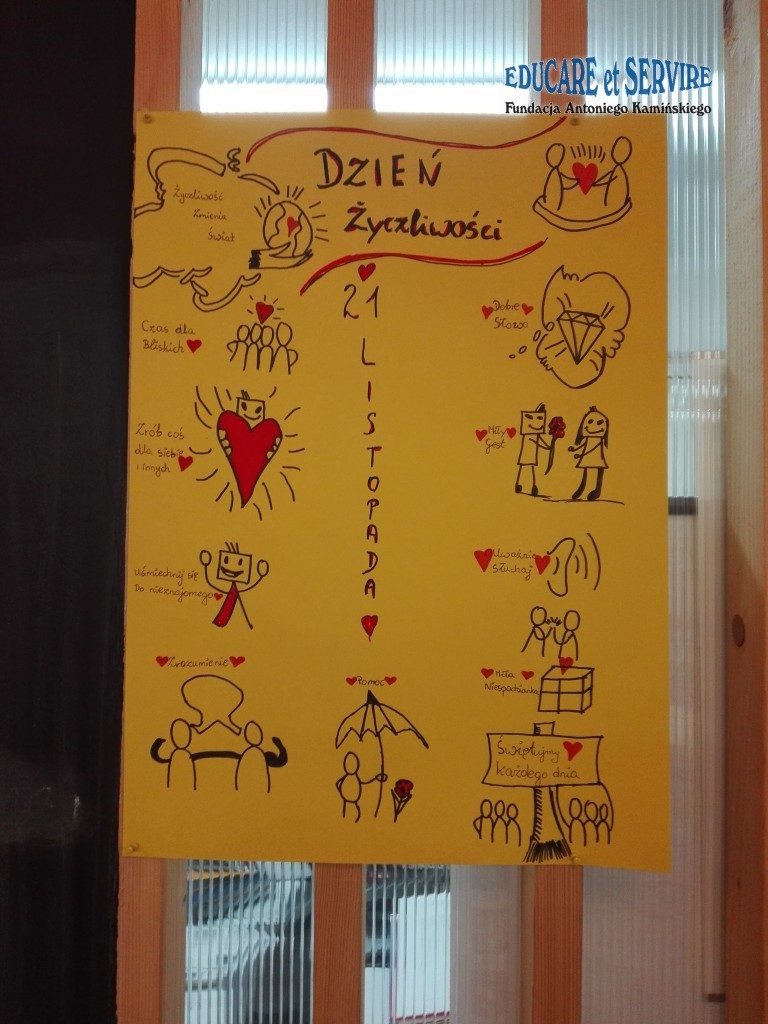 EDUCARE et SERVIRE
Fundacja Antoniego Kamińskiego
DZIEŃ
Życzliwości
21
LISTOPADA
Życzliwość
zmienia
świat
Czas dla
Bliskich
Zrób coś
dla siebie
i innych
uśmiechnij się
Do nieznajomego
Zrozumienie
Pomoc
Dobre
Słowo
Miły
Gest
Uważnie
Słuchaj
Miła
Niespodzianka
Świętujmy
każdego dnia